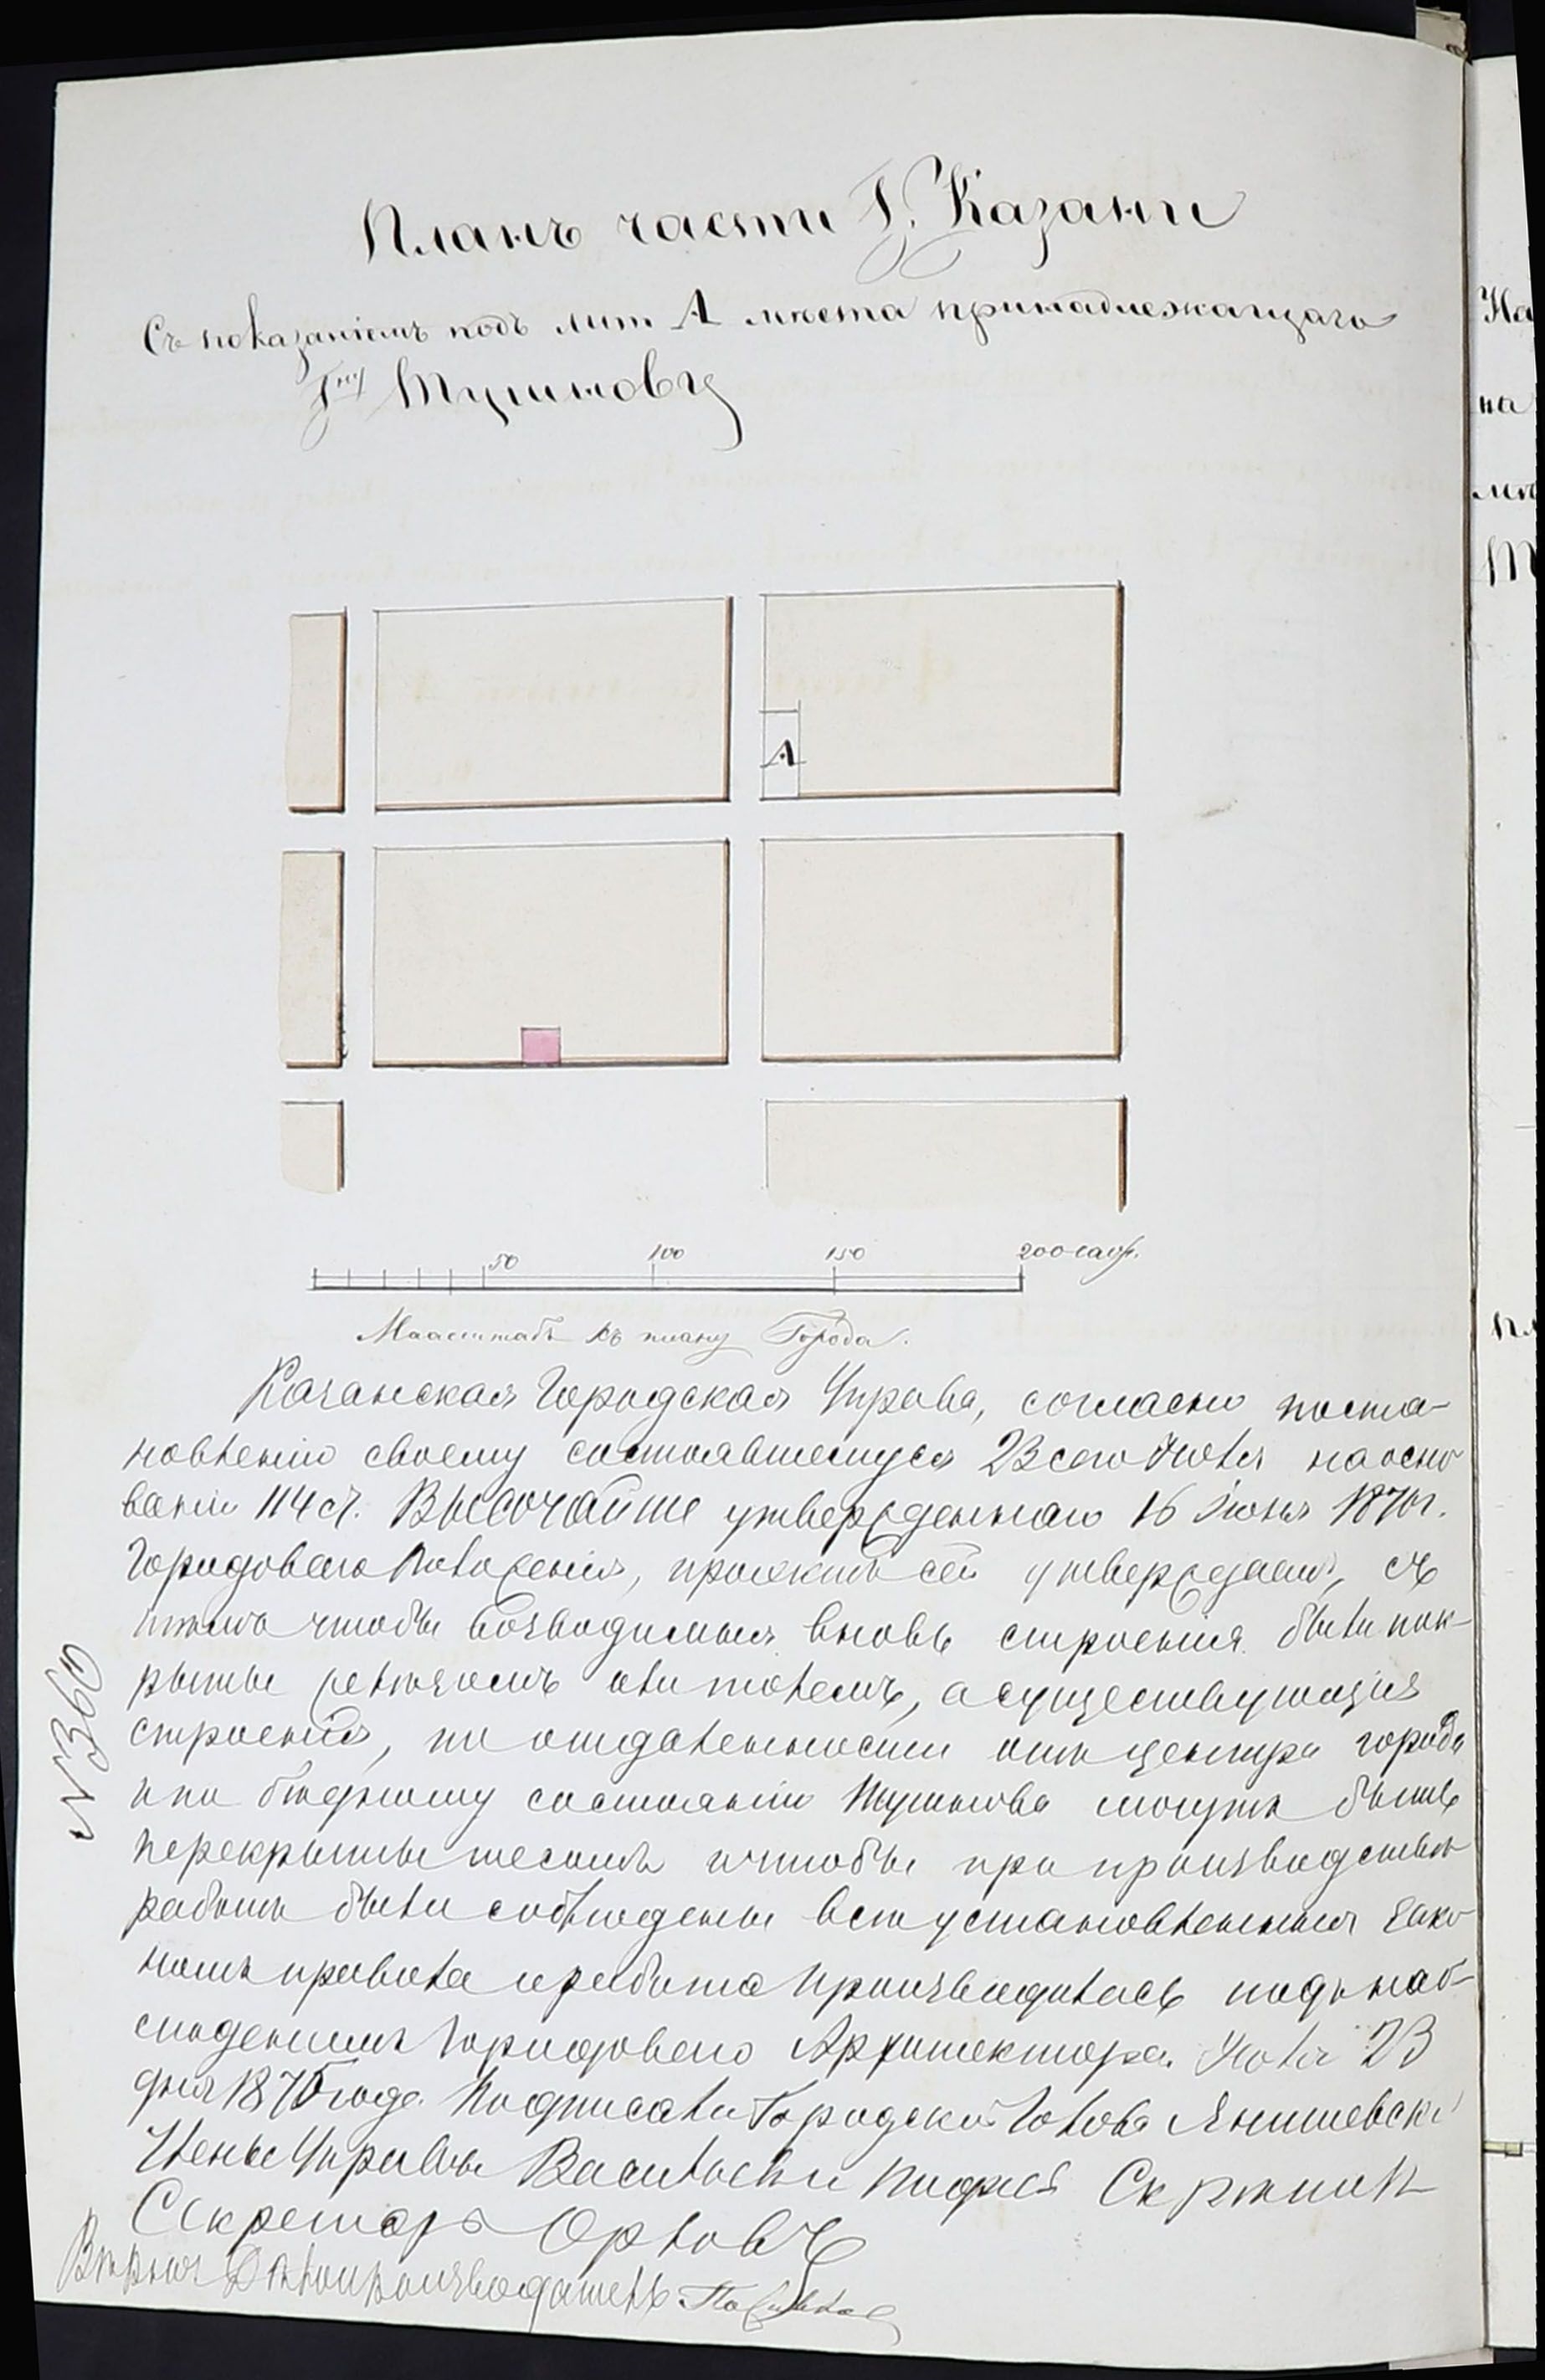 Планъ части Г. Казани
Съ показаніемъ подъ лит А мѣста принадлежащаго
Г-ну Тушнову
А
50 100 150 200 саж.
Маасштабъ къ плану Города.
Казанская Городская Управа, согласно поста-
новленію своему состоявшемуся 23 сего Іюля на осно
ваніи 114 ст. Высочайше утвержденнаго 16 Іюня 1870 г.
Городоваго Положенія, проэктъ сей утверждаетъ, съ
тѣмъ чтобы возводимыя вновь строенія были пок-
рыты желѣзомъ или толемъ, а существующія
строенія, по отдаленности отъ центра города
и по бѣдному состоянію Тушнова могутъ быть
перекрыты тесомъ и чтобы при производствѣ
работъ были соблюдены всѣ установленныя зако
номъ правила и работа производилась подъ наб-
людениемъ Городоваго Архитектора. Іюля 23
дня 1875 года. Подписали Городской Голова Янишевскі
Члены Управы Васильевъ и
Секретарь Орловъ
Вѣрно: Дѣлопроизводитель
№360
На
на
мѣ
Т
пл